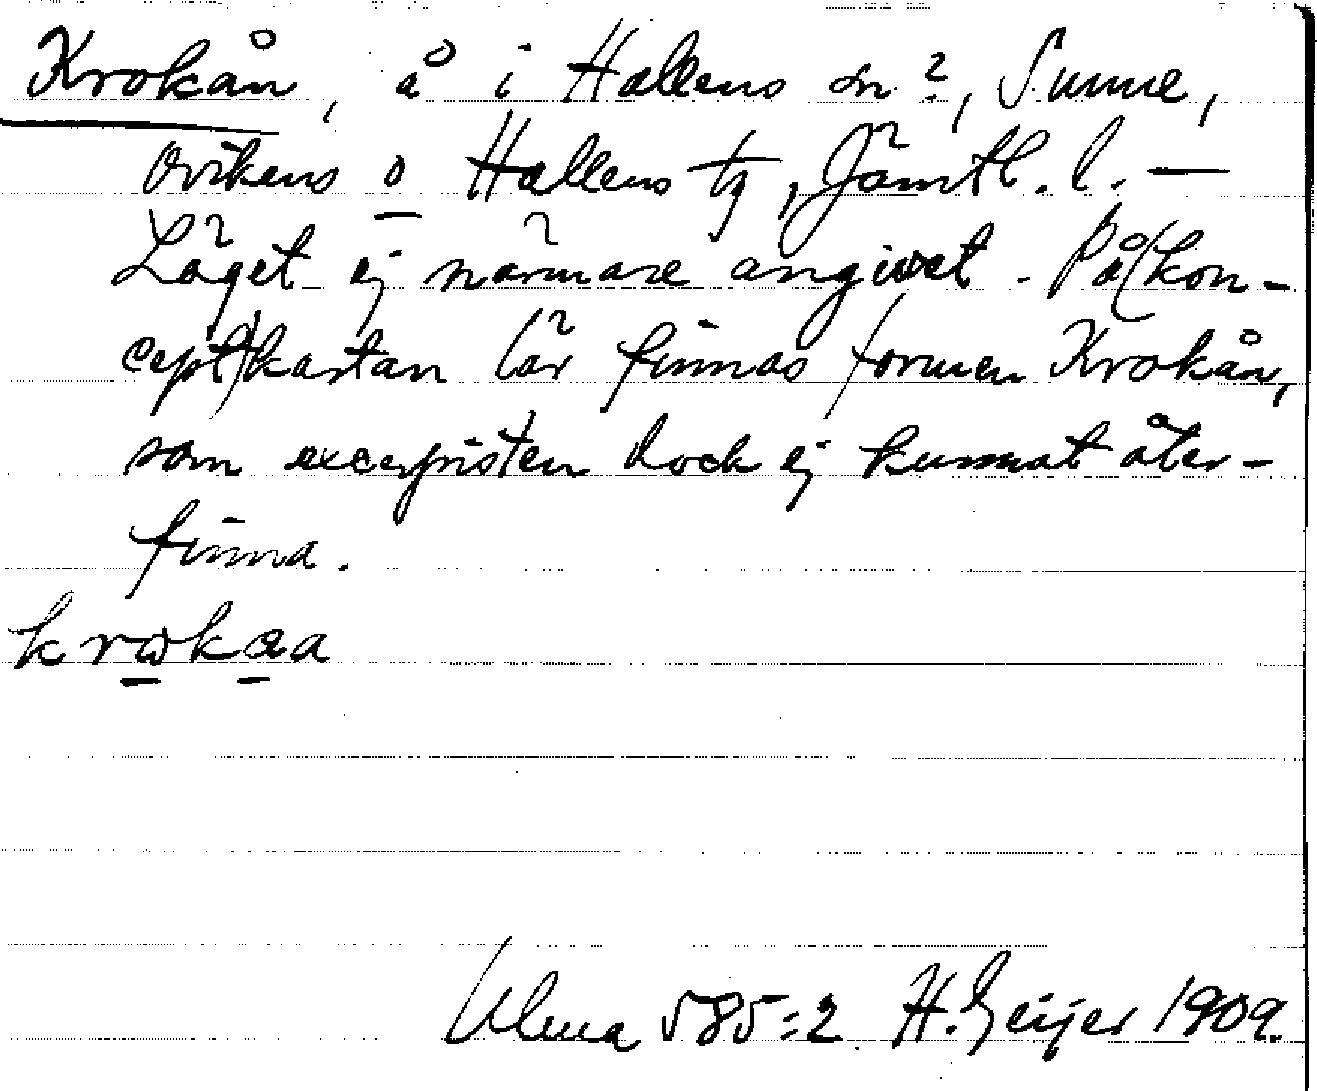 Krokån, å i Hallens sn?, Sunne,
Ovikens o Hallens tg, Jämtl. l. —
Läget ej närmare angivet. På (kon-
cept)kartan lär finnas formen Krokån,
som excerpisten dock ej kunnat åter-
finna.
Ulma 585:2 H. Geijer 1909.